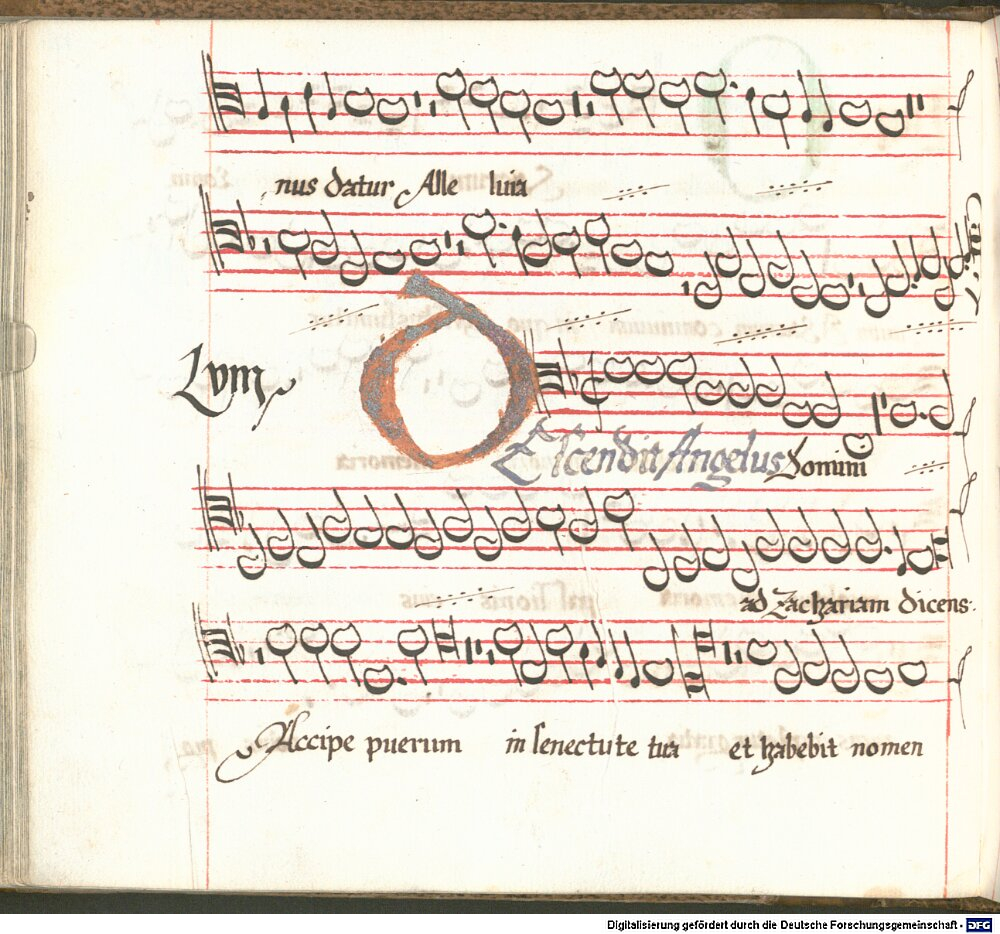 nus datur Alle luia
Lvm
DEscendit Angelus Domini
ad Zachariam dicens.
Accipe puerum in senectute tua et habebit nomen
Digitalisierung gefördert durch die Deutsche Forschungsgemeinschaft - DFG